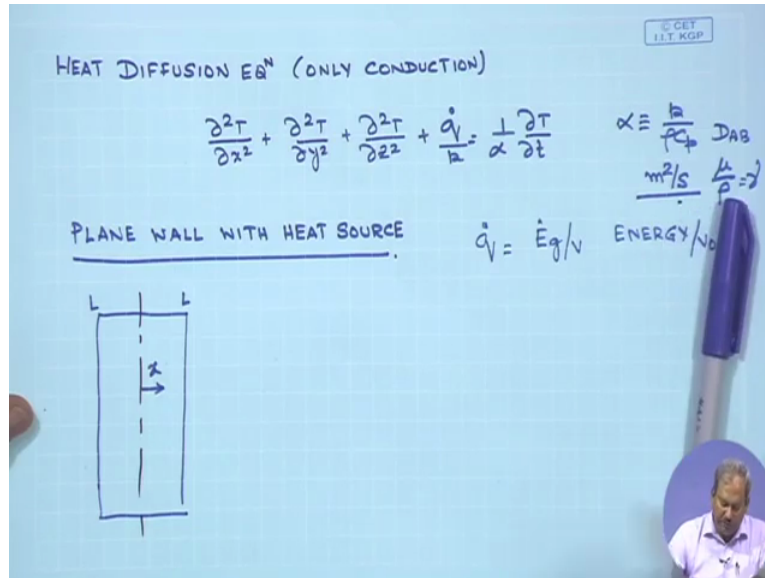 © CET
I.I.T. KGP
HEAT DIFFUSION EQᴺ (ONLY CONDUCTION)
∂²T/∂x² + ∂²T/∂y² + ∂²T/∂z² + q̇/k = 1/α ∂T/∂t
α ≡ k/ρCp D_AB
m²/s μ/ρ = ν
PLANE WALL WITH HEAT SOURCE
q̇ = Ėg/V ENERGY/
L L
x